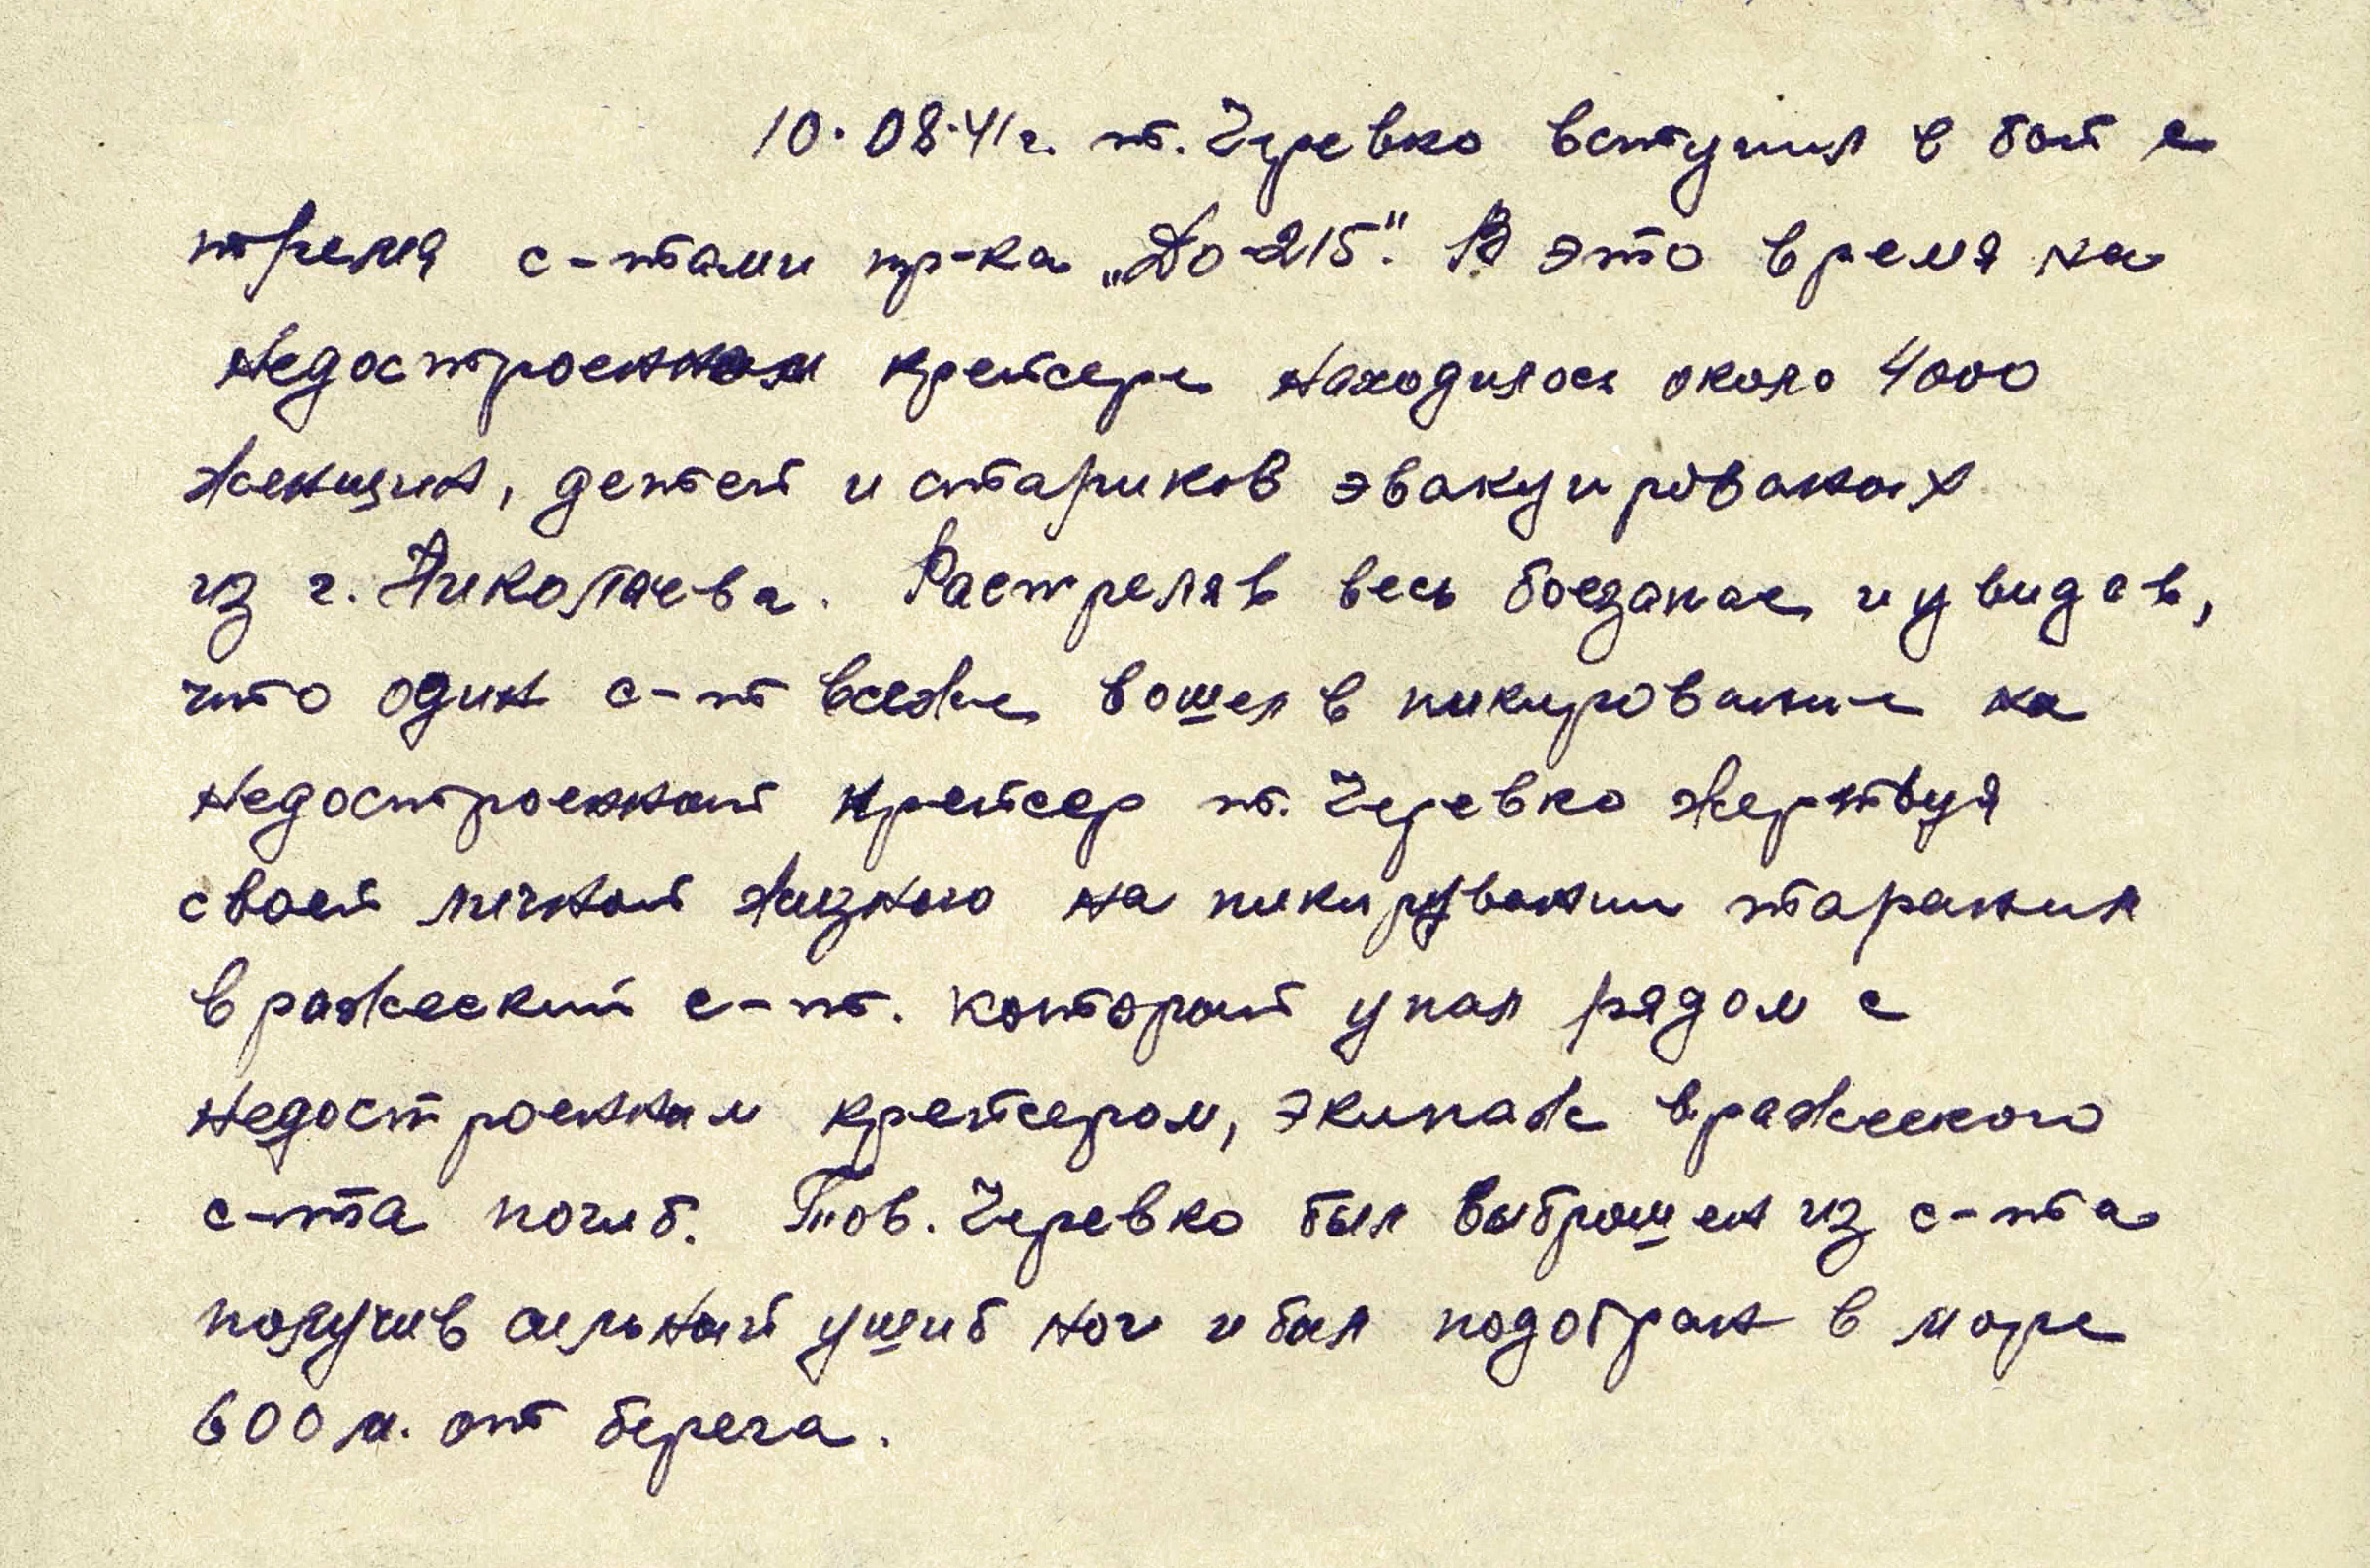 10.08.41г. т. Черевко вступил в бой с
тремя с-тами пр-ка „До-215". В это время на
недостроенном крейсере находилось около 4000
женщин, детей и стариков эвакуированых
из г. Николаева. Растреляв весь боезапас и увидев,
что один с-т всеже вошел в пикирование на
недостроенный крейсер т. Черевко жертвуя
своей личной жизнью на пикировании таранил
вражеский с-т. который упал рядом с
недостроенным крейсером, экипаж вражеского
с-та погиб. Тов. Черевко был выброшен из с-та
получив сильный ушиб ног и был подобран в море
600 м. от берега.